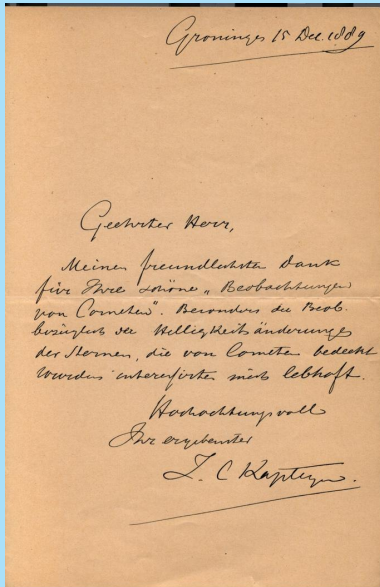 Groningen 15 Dec. 1889
Geehrter Herr,
Meinen freundlichsten Dank
für Ihre schöne „Beobachtungen
von Cometen“. Besonders die Beob.
bezüglich der Helligkeitsänderungen
der Sternen, die von Cometen bedeckt
wurden interessirten mich lebhaft.
Hochachtungsvoll
Ihr ergebenster
J. C Kapteyn.